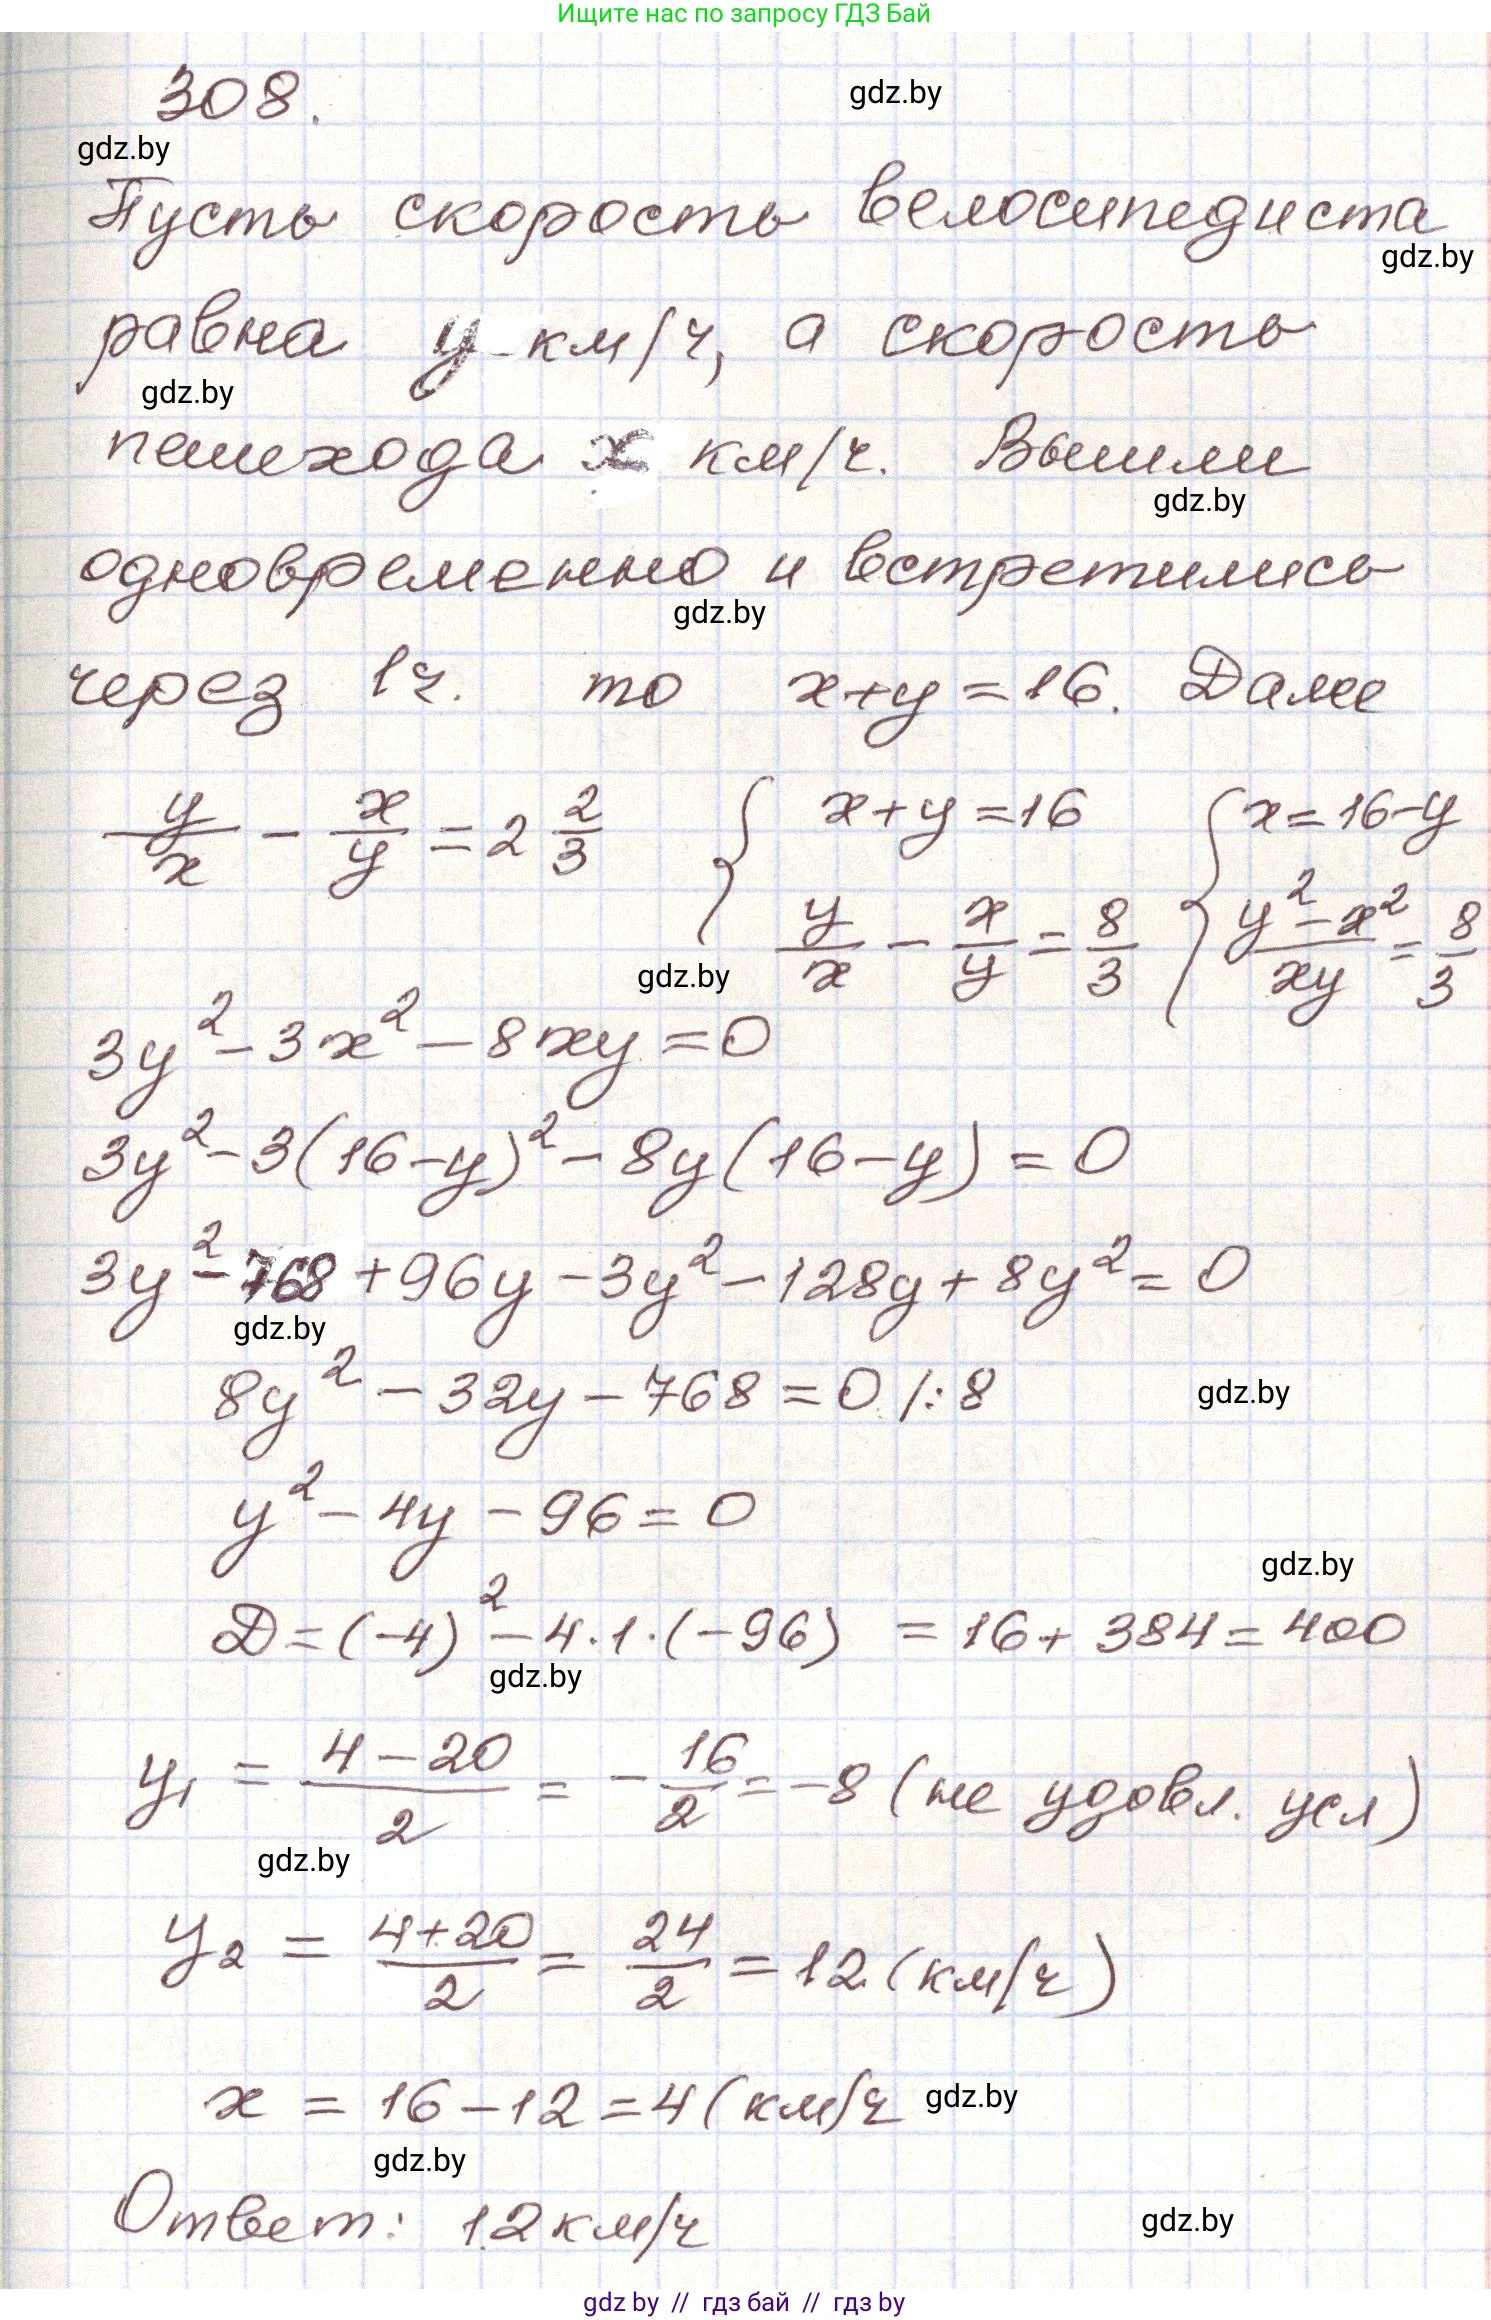 Ищите нас по запросу ГДЗ Бай
308.
gdz.by
gdz.by
Пусть скорость велосипедиста
gdz.by
равна y км/ч, а скорость
gdz.by
пешехода x км/ч. Вышли
gdz.by
одновременно и встретились
gdz.by
через 1ч. то x+y=16. Далее
y/x - x/y = 2 2/3 { x+y=16 { x=16-y
y/x - x/y = 8/3 (y²-x²)/xy = 8/3
gdz.by
3y²-3x²-8xy=0
3y²-3(16-y)²-8y(16-y)=0
3y²-768+96y-3y²-128y+8y²=0
gdz.by
8y²-32y-768=0 /:8
gdz.by
y²-4y-96=0
gdz.by
Д=(-4)²-4·1·(-96) =16+384=400
gdz.by
y₁ = (4-20)/2 = -16/2 = -8 (не удовл. усл)
gdz.by
y₂ = (4+20)/2 = 24/2 = 12 (км/ч)
x = 16-12=4 (км/ч
gdz.by
gdz.by
Ответ: 12км/ч
gdz.by
gdz.by // гдз бай // гдз by